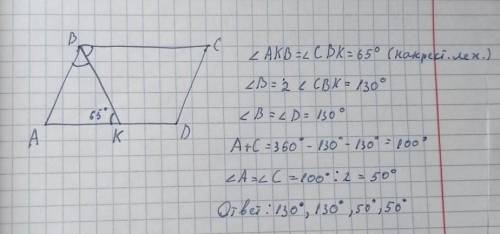 B
C
65°
A
K
D
∠AKB=∠CBK=65° (накрест.леж.)
∠B=2∠CBK=130°
∠B=∠D=130°
A+C=360°-130°-130°=100°
∠A=∠C=100°:2=50°
Ответ: 130°, 130°, 50°, 50°